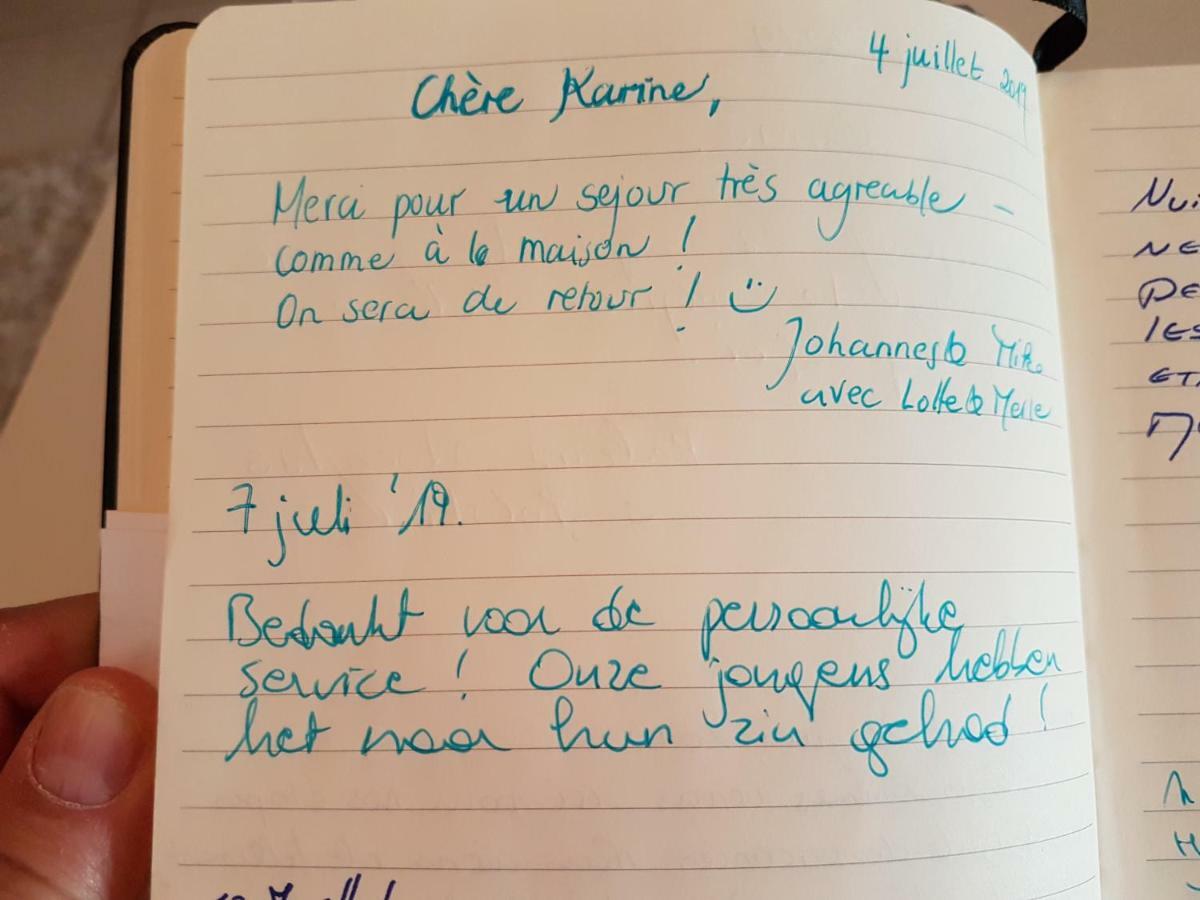 4 juillet 2019
Chère Karine,
Merci pour un sejour très agreable –
comme à la maison !
On sera de retour !
Johannes &
avec Lotte & Merle
7 juli '19.
Bedankt voor de persoonlijke
service ! Onze jongens hebben
het naar hun zin gehad !